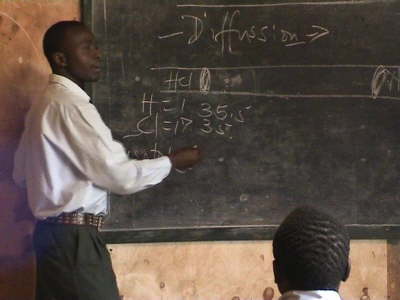 - Diffussion →
Hcl
H = 1 35.5
Cl = 17 35.